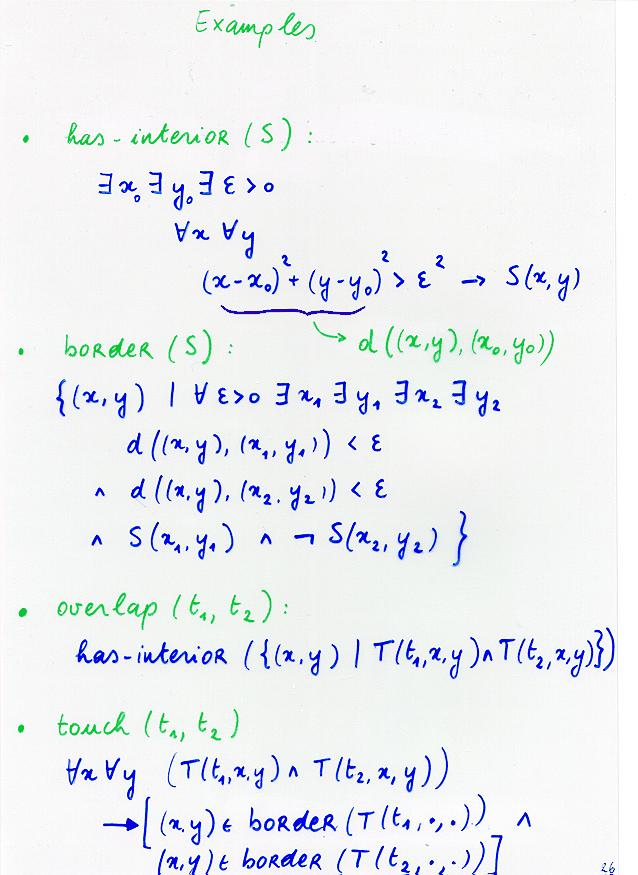 Examples
• has-interior (S) :
∃x₀ ∃y₀ ∃ε>0
∀x ∀y
(x-x₀)² + (y-y₀)² > ε² → S(x,y)
→ d((x,y),(x₀,y₀))
• border (S) :
{(x,y) | ∀ε>0 ∃x₁ ∃y₁ ∃x₂ ∃y₂
d((x,y),(x₁,y₁)) < ε
∧ d((x,y),(x₂,y₂)) < ε
∧ S(x₁,y₁) ∧ ¬ S(x₂,y₂) }
• overlap (t₁, t₂) :
has-interior ({(x,y) | T(t₁,x,y) ∧ T(t₂,x,y)})
• touch (t₁, t₂)
∀x ∀y (T(t₁,x,y) ∧ T(t₂,x,y))
→ [(x,y) ∈ border (T(t₁,·,·)) ∧
(x,y) ∈ border (T(t₂,·,·))]
26